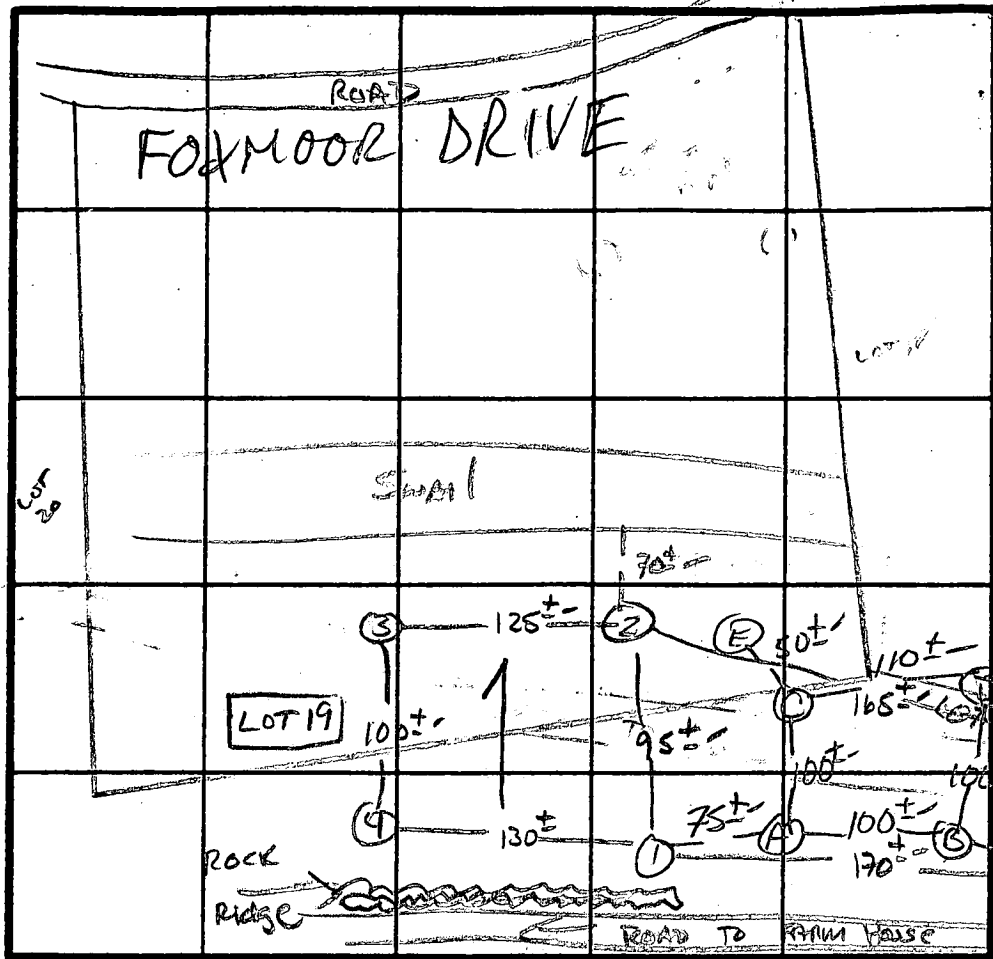 ROAD
FOXMOOR DRIVE
LOT
LOT 20
Swail
70±
3 125± 2 E 50± 110±
165±
LOT 19 100± 95±
100± 100
4 130± 1 75± A 100± B
170±
ROCK
Ridge
ROAD TO FARM HOUSE